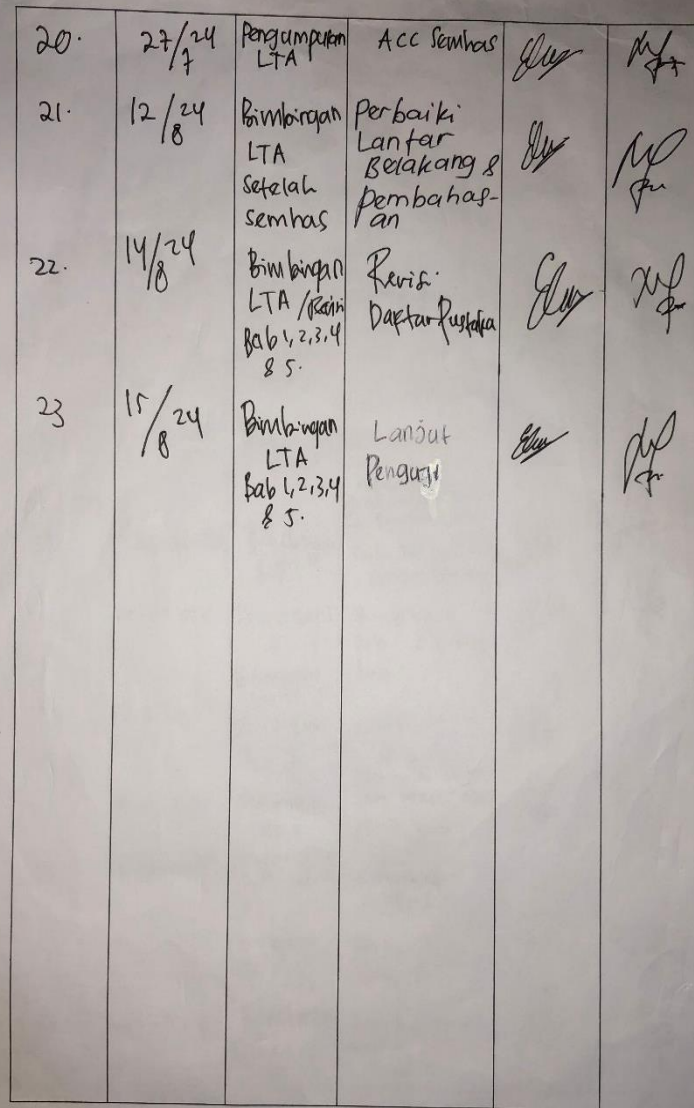 20.
27/7 24
Pengumpulan
LTA
ACC Semhas
21.
12/8 24
Bimbingan
LTA
Setelah
semhas
Perbaiki
Lantar
Belakang &
pembahas-
an
22.
14/8 24
Bimbingan
LTA /Revisi
Bab 1,2,3,4
& 5.
Revisi
Daftar Pustaka
23
15/8 24
Bimbingan
LTA
Bab 1,2,3,4
& 5.
Lanjut
Penguji